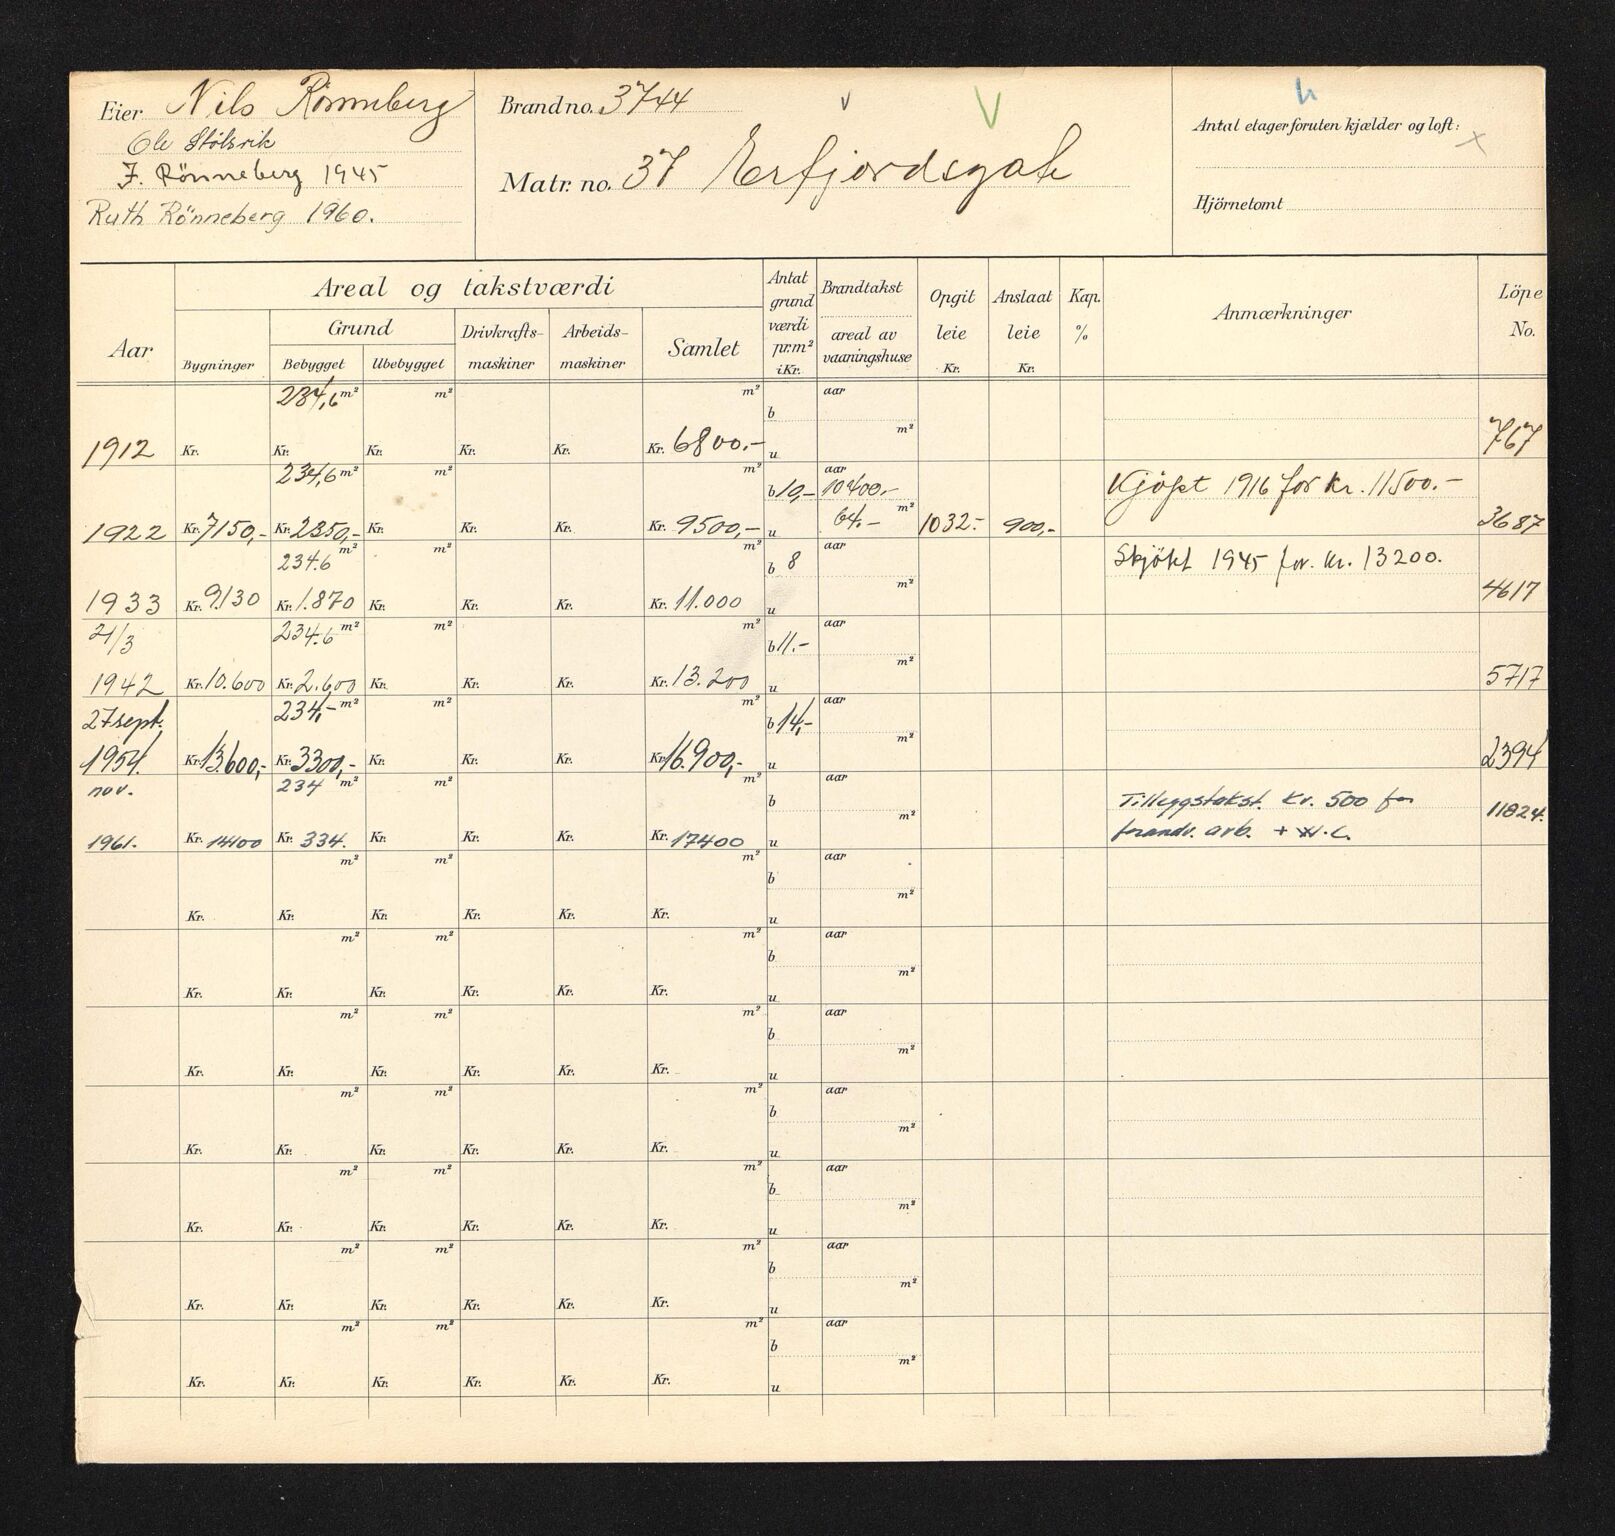 Eier Nils Rönneberg
Ole Stölsvik
J. Rönneberg 1945
Ruth Rönneberg 1960.
Brand no. 3744
Matr. no. 37 Erfjordsgate
Antal etager foruten kjælder og loft:
Hjörnetomt
Aar
Areal og takstværdi
Bygninger
Grund
Bebygget Ubebygget
Drivkrafts-
maskiner
Arbeids-
maskiner
Samlet
Antat
grund
værdi
pr.m²
i Kr.
Brandtakst
areal av
vaaningshuse
Opgit
leie
Kr.
Anslaat
leie
Kr.
Kap.
%
Anmærkninger
Löpe
No.
234,6 m² m² m² b aar
m²
1912 Kr. Kr. Kr. Kr. Kr. Kr. 6800.- u 767
234,6 m² m² m² b 10,- aar 10400.- Kjöpt 1916 for kr. 11500.-
m²
1922 Kr. 7150,- Kr. 2350,- Kr. Kr. Kr. Kr. 9500,- u 64.- 1032.- 900,- 3687
234.6 m² m² m² b 8 aar Skjöte 1945 for. kr. 13200.
m²
1933 Kr. 9.130 Kr. 1.870 Kr. Kr. Kr. Kr. 11.000 u 4617
21/3 234.6 m² m² m² b 11.- aar
m²
1942 Kr. 10.600 Kr. 2.600 Kr. Kr. Kr. Kr. 13.200 u 5717
27 sept. 234,- m² m² m² b 14,- aar
m²
1954. Kr. 13.600,- Kr. 3300,- Kr. Kr. Kr. Kr. 16.900,- u 2394
nov. 234 m² m² m² b aar Tilleggstakst. kr. 500 for 11824.
m²
1961. Kr. 14100 Kr. 334. Kr. Kr. Kr. Kr. 17400 u forandr. arb. + W.C.
m² m² m² b aar
m²
Kr. Kr. Kr. Kr. Kr. Kr. u
m² m² m² b aar
m²
Kr. Kr. Kr. Kr. Kr. Kr. u
m² m² m² b aar
m²
Kr. Kr. Kr. Kr. Kr. Kr. u
m² m² m² b aar
m²
Kr. Kr. Kr. Kr. Kr. Kr. u
m² m² m² b aar
m²
Kr. Kr. Kr. Kr. Kr. Kr. u
m² m² m² b aar
m²
Kr. Kr. Kr. Kr. Kr. Kr. u
m² m² m² b aar
m²
Kr. Kr. Kr. Kr. Kr. Kr. u